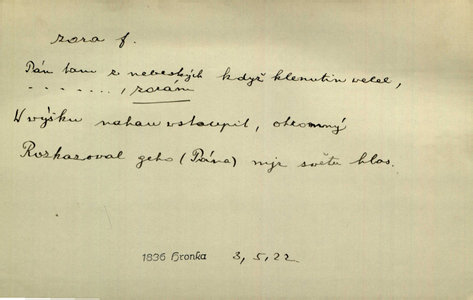 zora f.
Pán tam z nebeských když klenutin velel,
. . . . . . . , zorám
W výšku nahau vstaupit, ohromný
Rozkazoval geho (Pána) njz světu hlas.
1836 Hronka 3, 5, 22